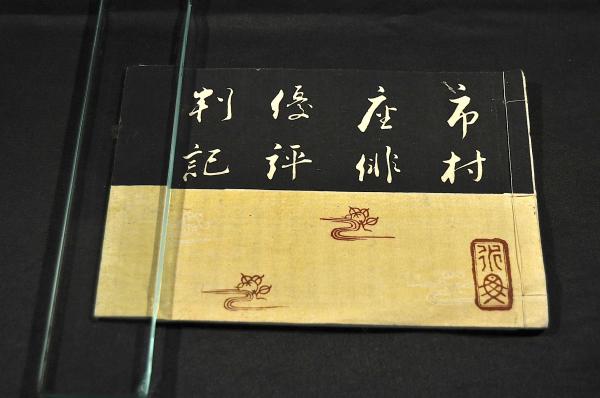 市村
座俳
優評
判記